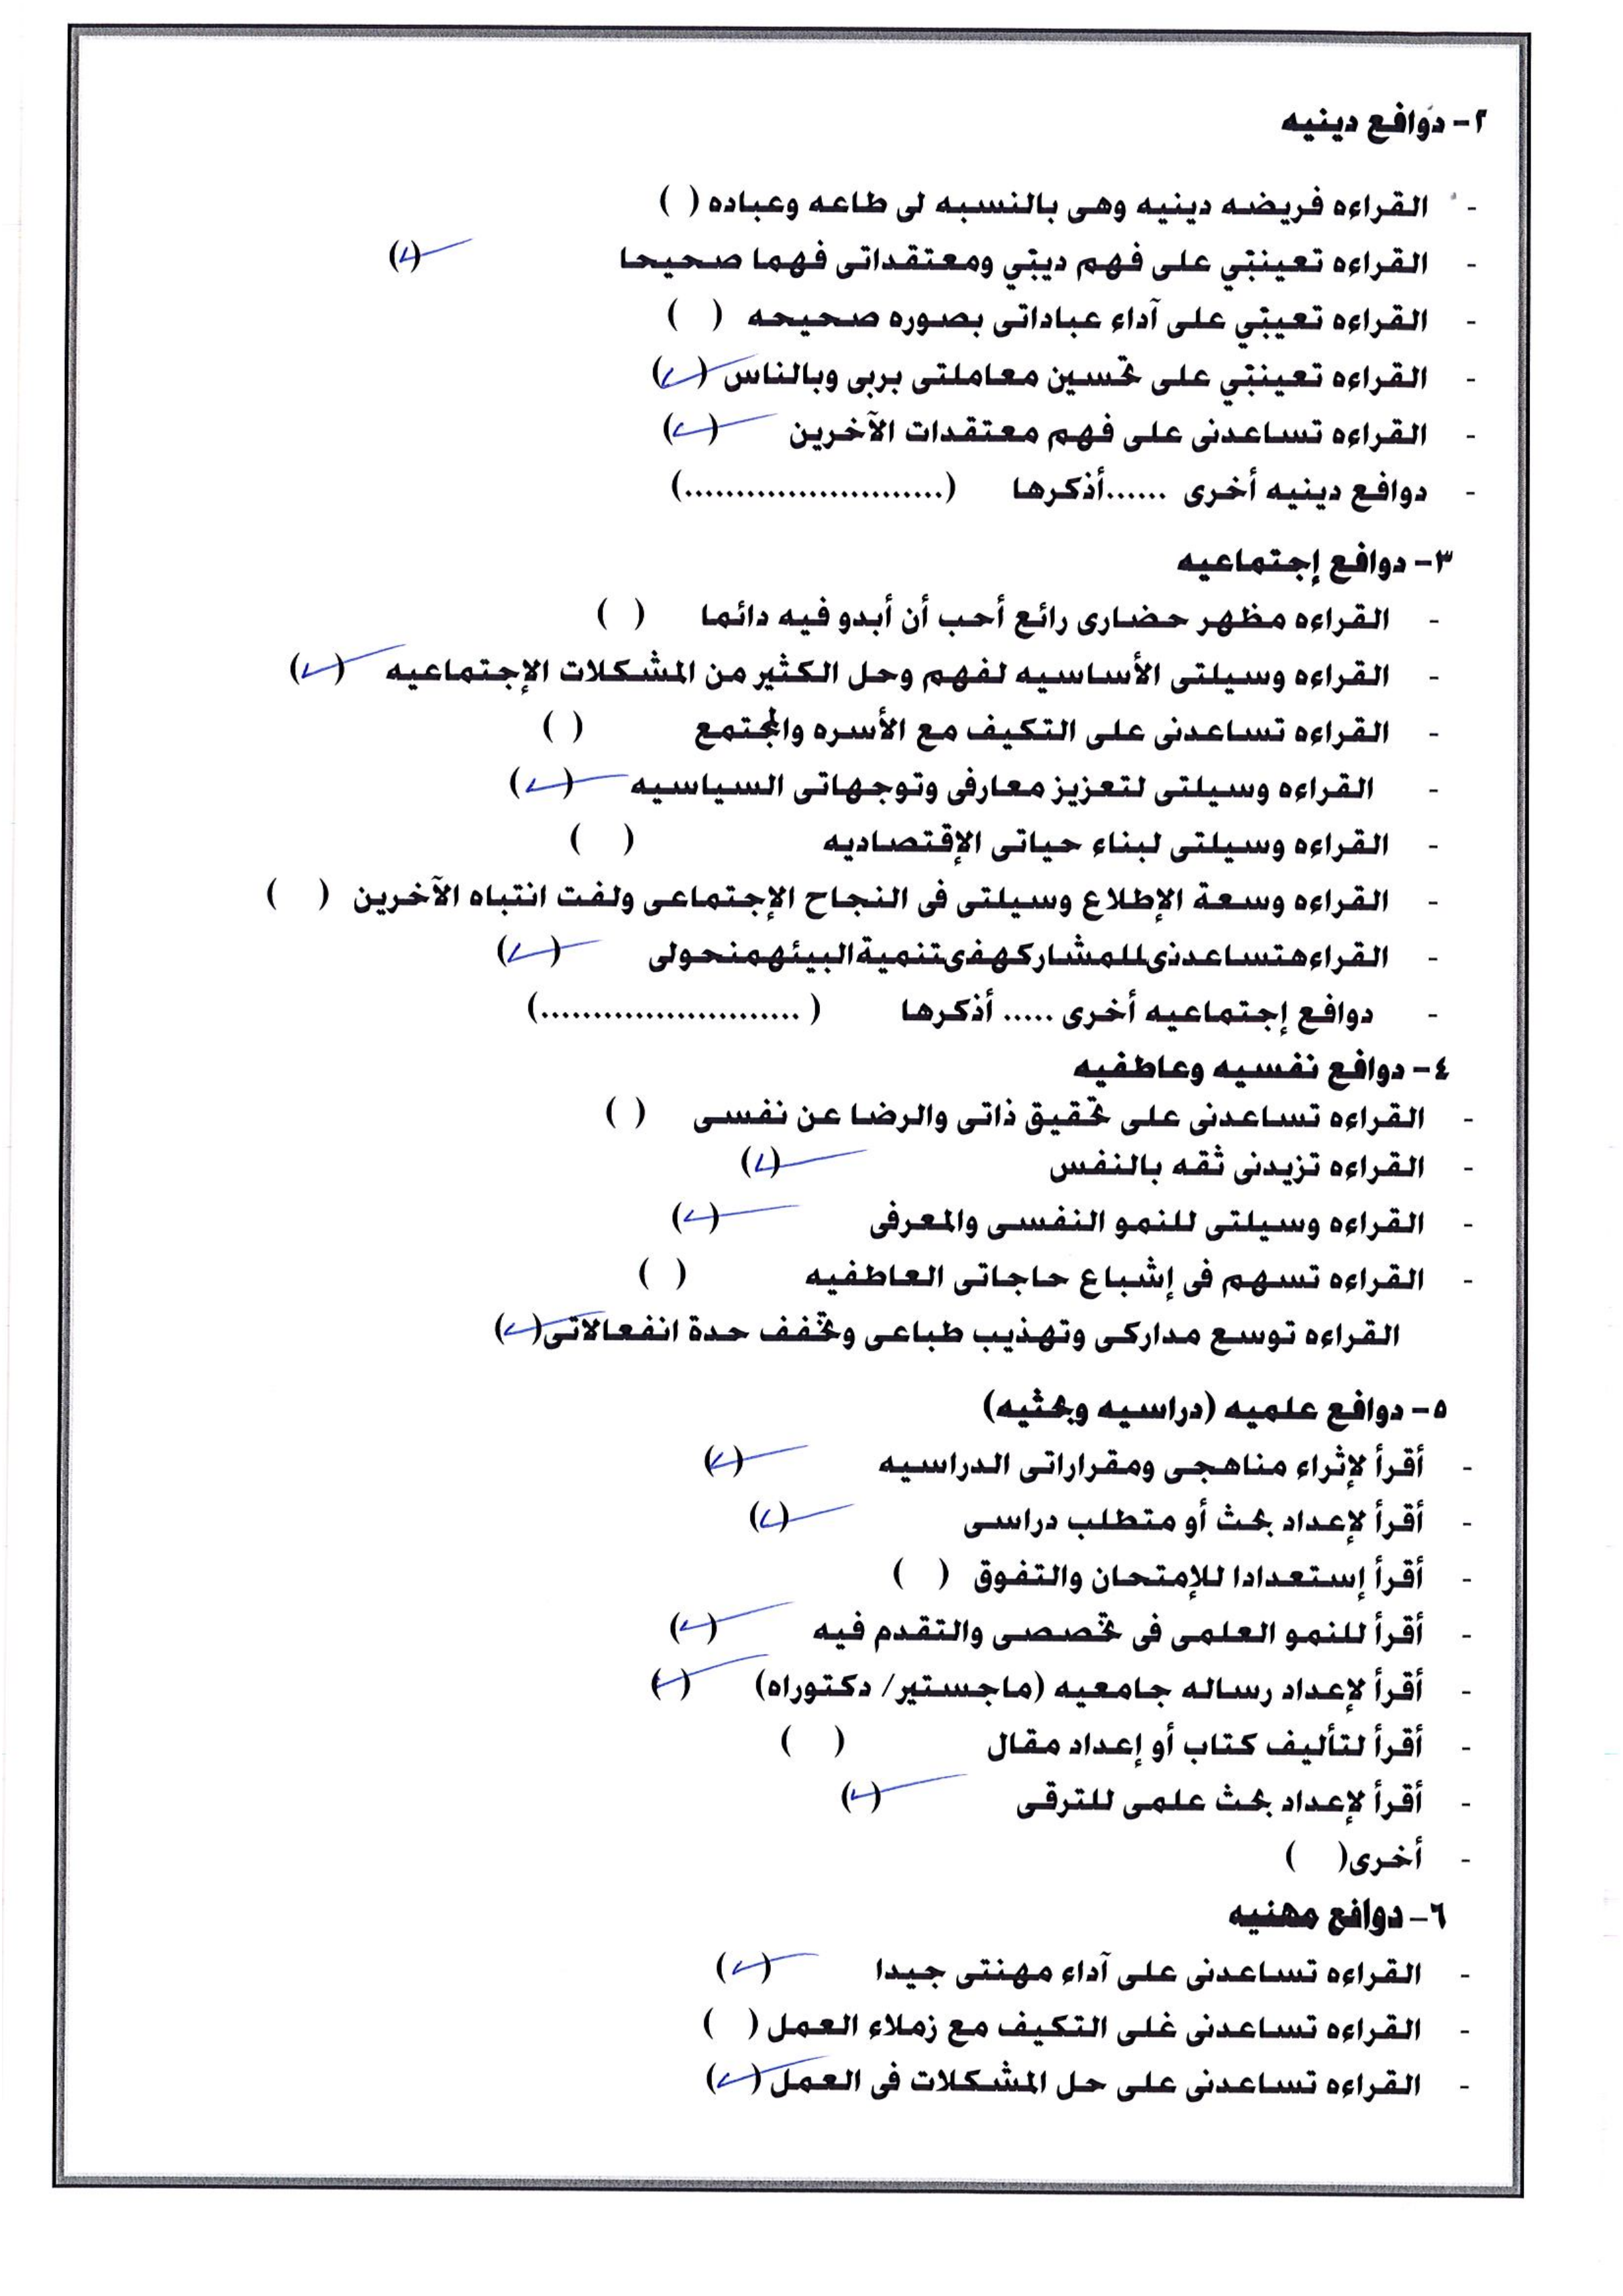 ٢- دوافع دينيه
- القراءه فريضه دينيه وهى بالنسبه لى طاعه وعباده ( )
- القراءه تعينني على فهم ديني ومعتقداتى فهما صحيحا (✓)
- القراءه تعيني على آداء عباداتى بصوره صحيحه ( )
- القراءه تعينني على تحسين معاملتى بربى وبالناس (✓)
- القراءه تساعدنى على فهم معتقدات الآخرين (✓)
- دوافع دينيه أخرى ......أذكرها (.........................)
٣- دوافع إجتماعيه
- القراءه مظهر حضارى رائع أحب أن أبدو فيه دائما ( )
- القراءه وسيلتى الأساسيه لفهم وحل الكثير من المشكلات الإجتماعيه (✓)
- القراءه تساعدنى على التكيف مع الأسره والمجتمع ( )
- القراءه وسيلتى لتعزيز معارفى وتوجهاتى السياسيه (✓)
- القراءه وسيلتى لبناء حياتى الإقتصاديه ( )
- القراءه وسعة الإطلاع وسيلتى فى النجاح الإجتماعى ولفت انتباه الآخرين ( )
- القراءهتساعدنىللمشاركهفىتنميةالبيئهمنحولى (✓)
- دوافع إجتماعيه أخرى ..... أذكرها ( .........................)
٤- دوافع نفسيه وعاطفيه
- القراءه تساعدنى على تحقيق ذاتى والرضا عن نفسى ( )
- القراءه تزيدنى ثقه بالنفس (✓)
- القراءه وسيلتى للنمو النفسى والمعرفى (✓)
- القراءه تسهم فى إشباع حاجاتى العاطفيه ( )
القراءه توسع مداركى وتهذيب طباعى وتخفف حدة انفعالاتى(✓)
٥- دوافع علميه (دراسيه وبحثيه)
- أقرأ لإثراء مناهجى ومقراراتى الدراسيه (✓)
- أقرأ لإعداد بحث أو متطلب دراسى (✓)
- أقرأ إستعدادا للإمتحان والتفوق ( )
- أقرأ للنمو العلمى فى تخصصى والتقدم فيه (✓)
- أقرأ لإعداد رساله جامعيه (ماجستير/ دكتوراه) (✓)
- أقرأ لتأليف كتاب أو إعداد مقال ( )
- أقرأ لإعداد بحث علمى للترقى (✓)
- أخرى( )
٦- دوافع مهنيه
- القراءه تساعدنى على آداء مهنتى جيدا (✓)
- القراءه تساعدنى غلى التكيف مع زملاء العمل ( )
- القراءه تساعدنى على حل المشكلات فى العمل (✓)